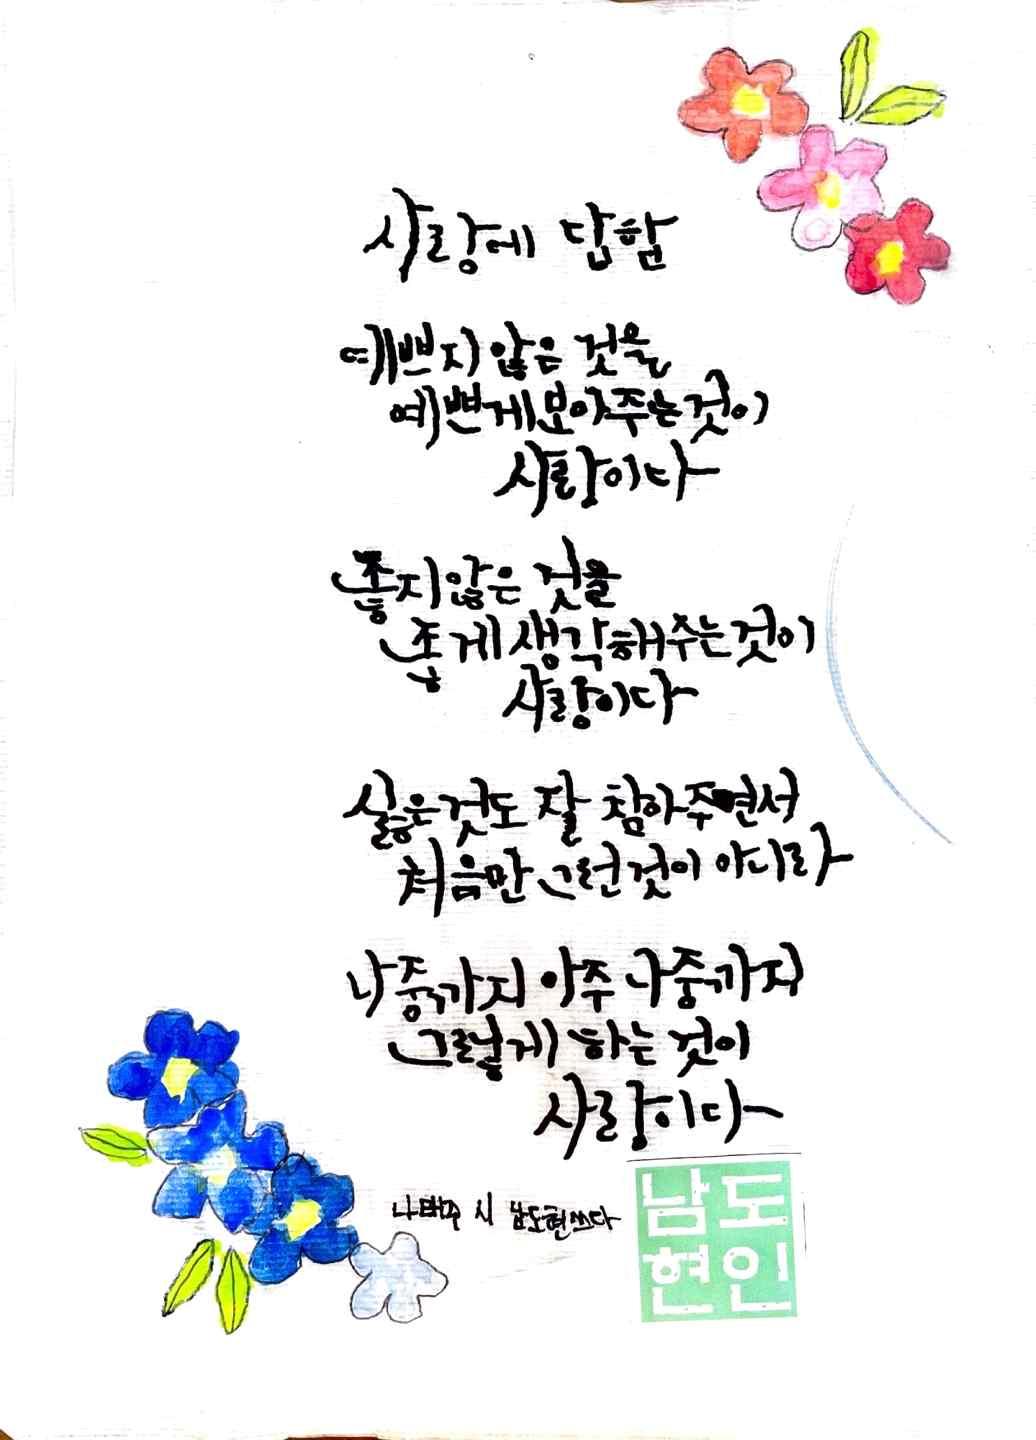 사랑에 답함
예쁘지 않은 것을
예쁘게 보아주는 것이
사랑이다
좋지 않은 것을
좋게 생각해주는 것이
사랑이다
싫은 것도 잘 참아주면서
처음만 그런 것이 아니라
나중까지 아주 나중까지
그렇게 하는 것이
사랑이다
나태주 시 남도현 쓰다
남도
현인